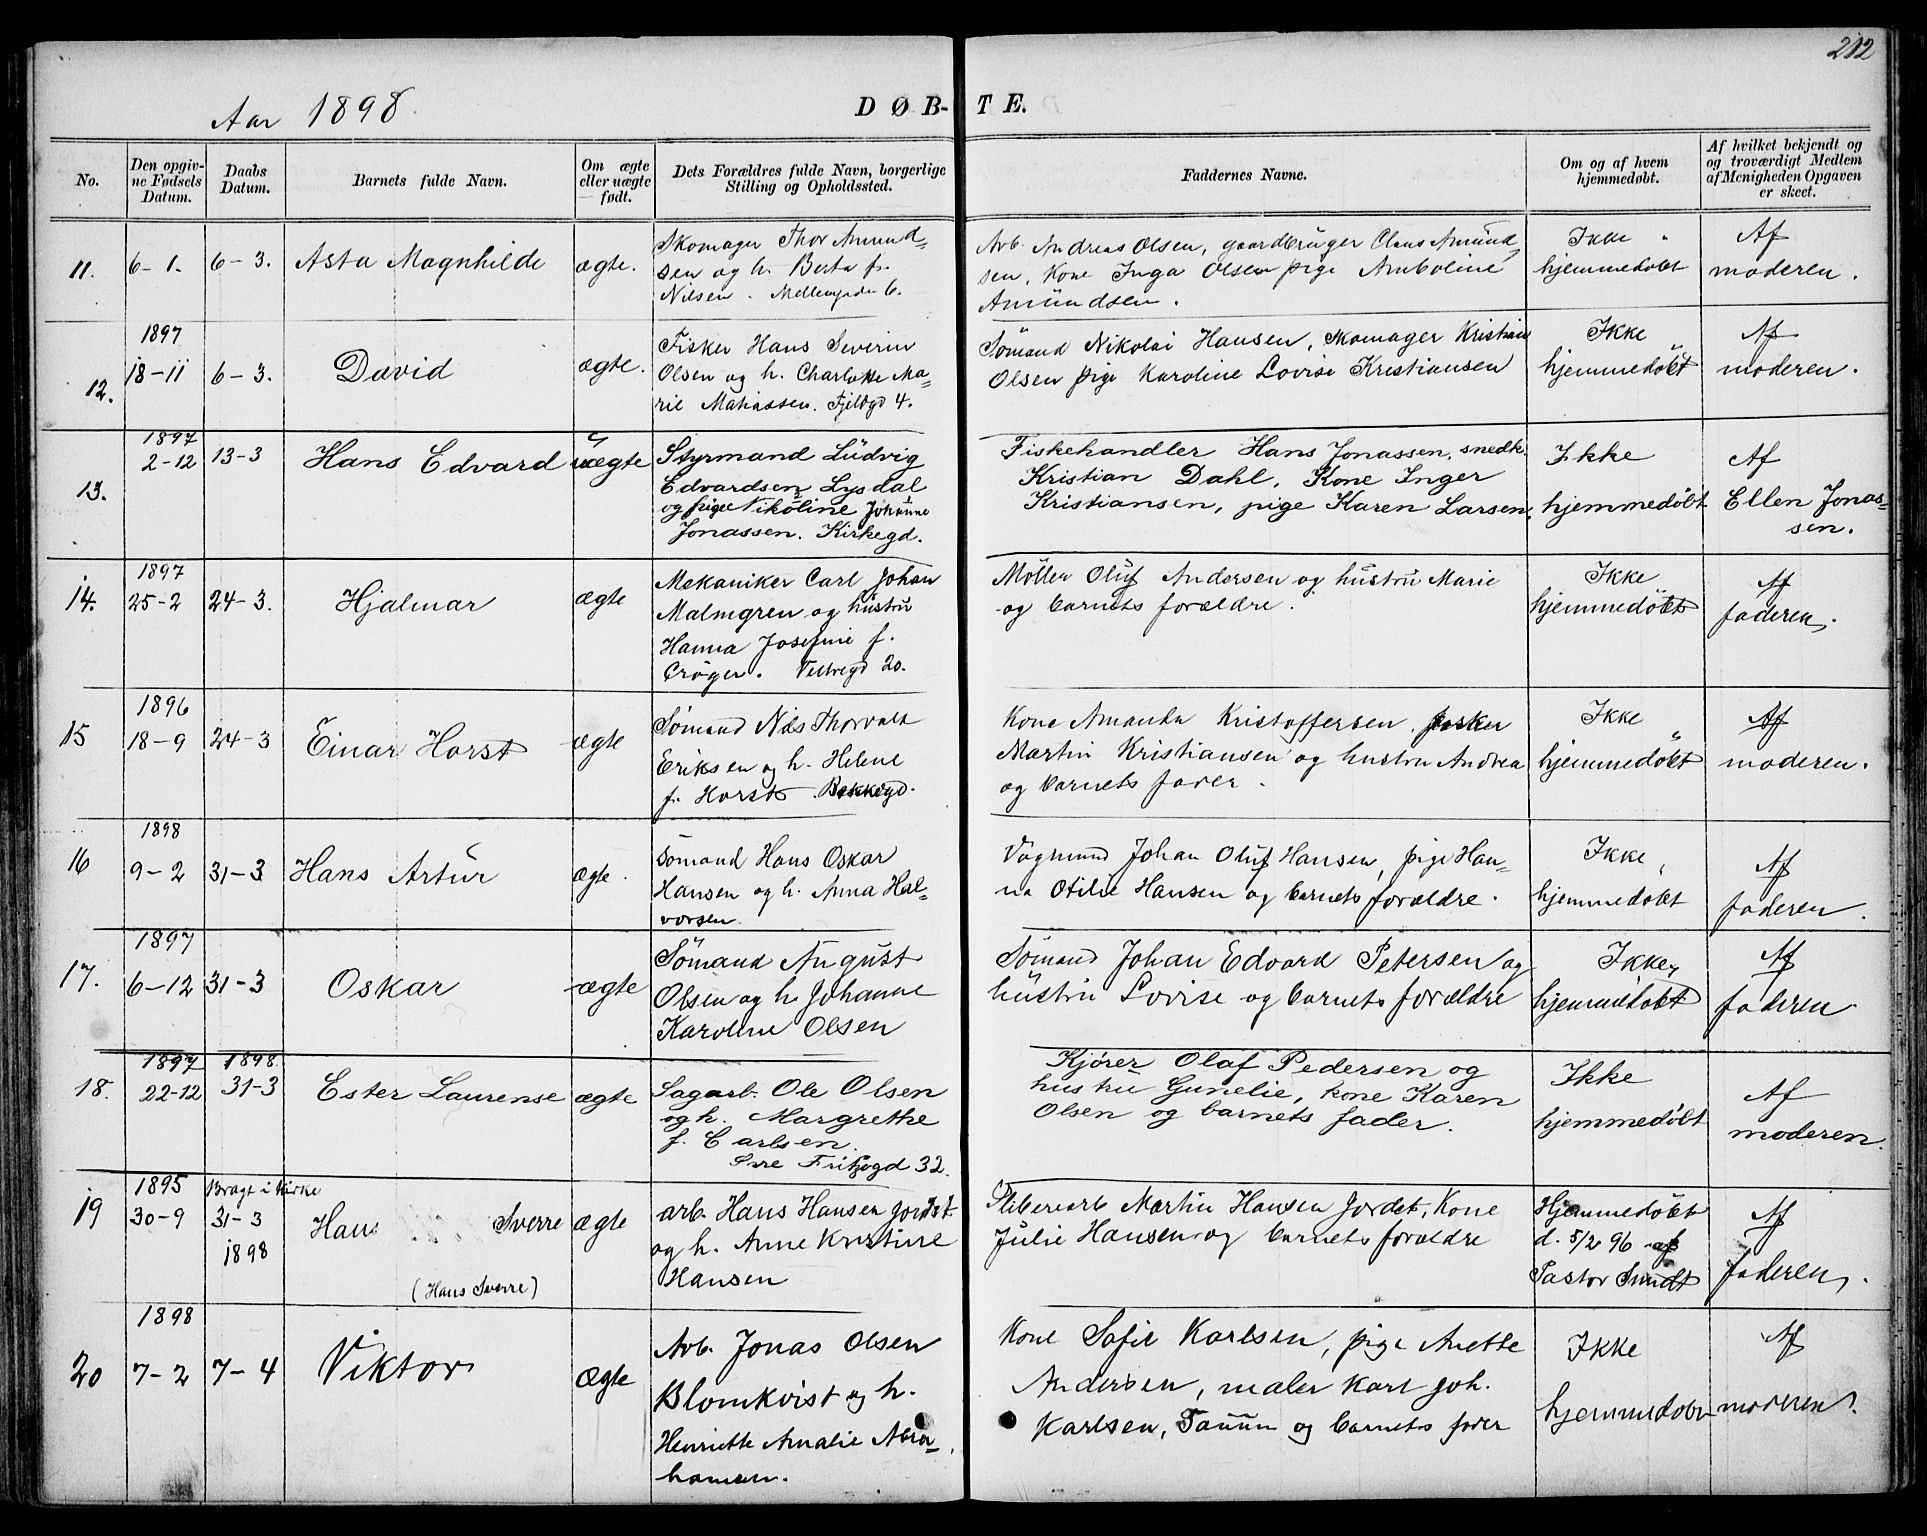 212
Aar 1898
DØBTE.
No. | Den opgivne Fødsels Datum. | Daabs Datum. | Barnets fulde Navn. | Om ægte eller uægte født. | Dets Forældres fulde Navn, borgerlige Stilling og Opholdssted. | Faddernes Navne. | Om og af hvem hjemmedøbt. | Af hvilket bekjendt og og troværdigt Medlem af Menigheden Opgaven er skeet.
11. 6-1. 6-3. Asta Magnhilde ægte.
Skomager Thor Amund-
sen og h. Berta f.
Nilsen. 6.
Arb. Andreas Olsen, gaardbruger Claus Amund
sen, kone Inga Olsen pige Amboline
Amundsen.
Ikke
hjemmedøbt
Af
moderen.
12. 1897
18-11 6-3. David ægte.
Fisker Hans Severin
Olsen og h. Charlotte Ma-
rie Mathiassen. Fjeldgd 4.
Sømand Nikolai Hansen, skomager Kristian
Olsen pige Karoline Lovise Kristiansen
Ikke
hjemmedøbt
Af
moderen.
13. 1897
2-12 13-3 Hans Edvard uægte
Styrmand Ludvig
Edvardsen Lysdal
og pige Nikoline Johanne
Jonassen. Kirkegd.
Fiskehandler Hans Jonassen, snedk.
Kristian Dahl, Kone Inger
Kristiansen, pige Karen Larsen.
Ikke
hjemmedøbt
Af
Ellen Jonas-
sen.
14. 1897
25-2 24-3. Hjalmar ægte
Mekaniker Carl Johan
Malmgren og hustru
Hanna Josefine f.
Crøger. Vestregd 20.
Møller Oluf Andersen og hustru Marie
og barnets forældre.
Ikke
hjemmedøbt
Af
faderen.
15 1896
18-9 24-3 Einar Horst ægte
Sømand Nils Thorvald
Eriksen og h. Helene
f. Horst. Bakkegd.
Kone Amanda Kristoffersen,
Martin Kristiansen og hustru Andrea
og barnets fader.
Ikke
hjemmedøbt
Af
moderen.
16 1898
9-2 31-3 Hans Artur ægte.
Sømand Hans Oskar
Hansen og h. Anna Hal-
vorsen.
Vognmand Johan Oluf Hansen, pige Han-
na Otilie Hansen og barnets forældre.
Ikke
hjemmedøbt
Af
faderen.
17. 1897
6-12 31-3 Oskar ægte
Sømand August
Olsen og h. Johanne
Karoline Olsen
Sømand Johan Edvard Petersen og
hustru Lovise og barnets forældre
Ikke
hjemmedøbt
Af
faderen
18. 1897 1898
22-12 31-3 Ester Laurense ægte
Sagarb. Ole Olsen
og h. Margrethe
f. Carlsen.
Øvre Fritzøgd 32.
Kjører Olaf Pedersen og
hustru Gunelie, kone Karen
Olsen og barnets fader.
Ikke
hjemmedøbt
Af
moderen.
19 1895 Bragt i Kirke
30-9 31-3
1898
Hans Sverre ægte
(Hans Sverre)
arb. Hans Hansen Jordet
og h. Anne Kristine
Hansen
Sliberiarb Martin Hansen Jordet, Kone
Julie Hansen og barnets forældre
Hjemmedøbt
d. 5/2 96 af
Pastor Smidt
Af
faderen.
20 1898
7-2 7-4 Viktor ægte
Arb. Jonas Olsen
Blomkvist og h.
Henriette Amalie Abra-
hamsen.
Kone Sofie Karlsen, pige Anette
Andersen, maler Karl Joh.
Karlsen, Taum og barnets fader
Ikke
hjemmedøbt
Af
moderen.